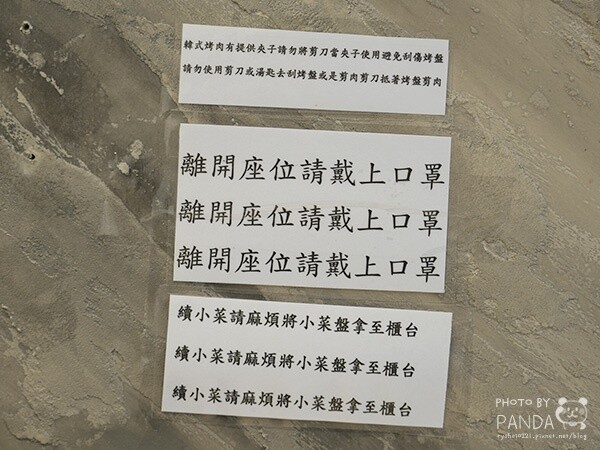 韓式烤肉有提供夾子請勿將剪刀當夾子使用避免刮傷烤盤
請勿使用剪刀或湯匙去刮烤盤或是剪肉剪刀抵著烤盤剪肉
離開座位請戴上口罩
離開座位請戴上口罩
離開座位請戴上口罩
續小菜請麻煩將小菜盤拿至櫃台
續小菜請麻煩將小菜盤拿至櫃台
續小菜請麻煩將小菜盤拿至櫃台
PHOTO BY
PANDA